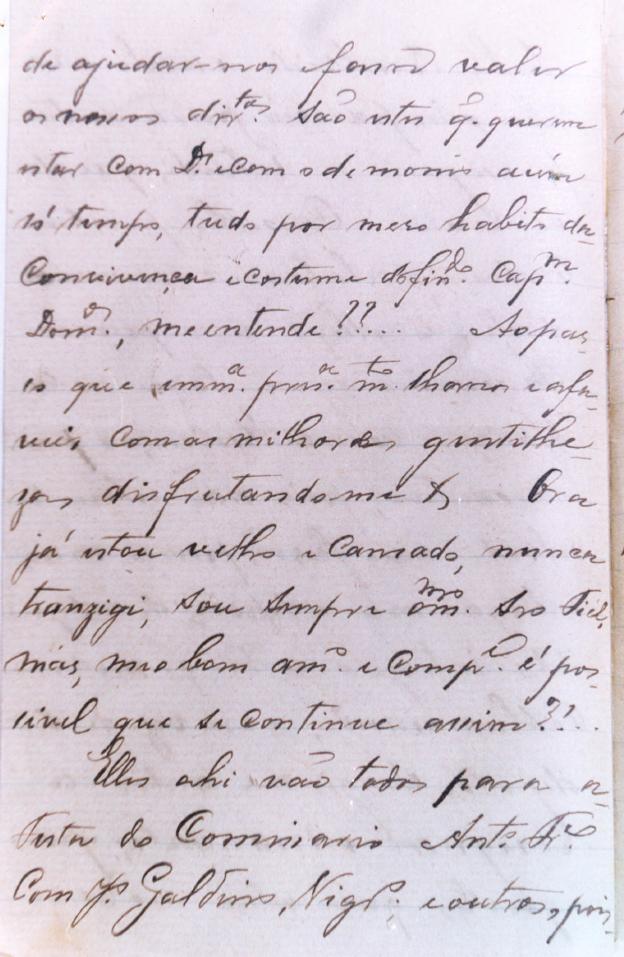 de ajudar-nos e fazer valer
os nossos dirtos. São estes q. querem
estar com D.s e com o demonio a um
só tempo, tudo por mero habito da
Convivença e costume do fin.do Cap.m
Dom.os, me entende??...  Ao pas-
so que em m.a pres.a m.to lhanos e afa-
veis com as milhores gentilhe-
zas disfrutando me &  Ora
já estou velho e Cansado, nunca
tranzigi, sou sempre o m.mo Seo Fiel,
mas, meo bom am.o e Comp.e é pos-
sivel que se continue assim?!..
Elles ahi vão todos para a
festa do Commissario Ant.o Fr.co
Com J.e Galdino, Nigr.o e outros, pois